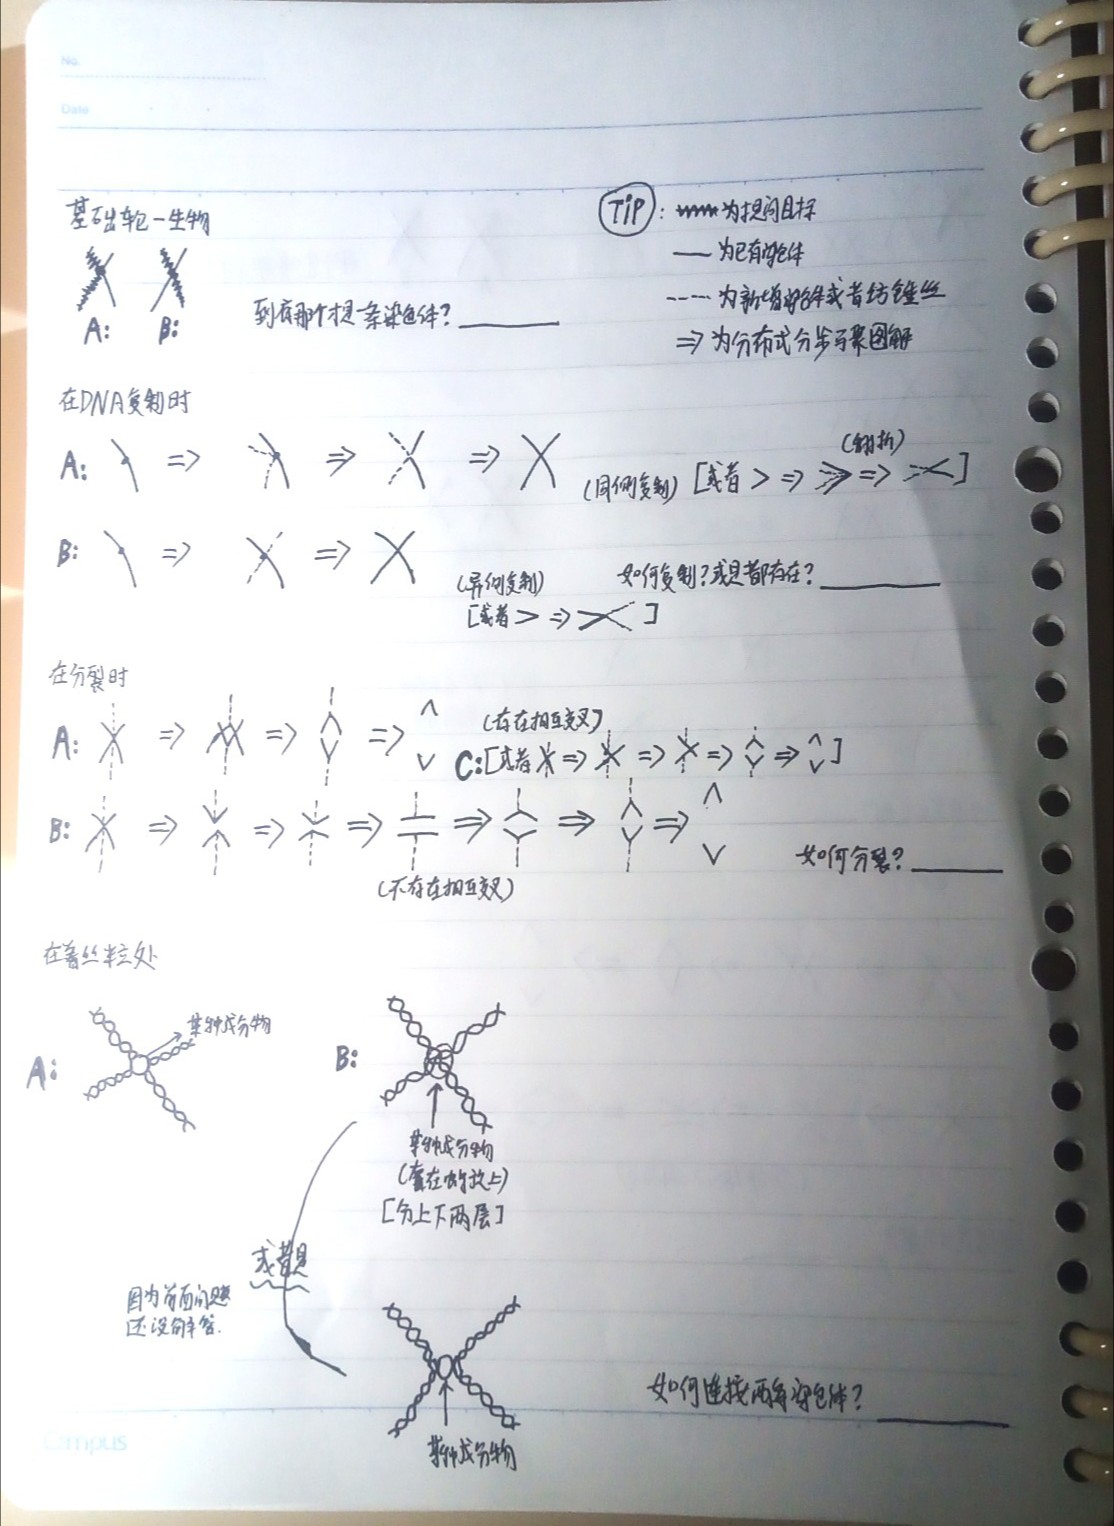 No.
Date
基础轮包-生物
TIP: 为提问目标
— 为已有染色体
---- 为新增染色体或者纺锤丝
⇒ 为分布式分步骤图解
A: B:
到底那个才是一条染色体?
在DNA复制时
A: ⇒ ⇒ ⇒ (同侧复制) [或者 > ⇒ ⇒ ] (翻折)
B: ⇒ ⇒
(异侧复制) 如何复制?或是都存在?
[或者 > ⇒ ]
在分裂时
A: ⇒ ⇒ ⇒ (存在相互交叉)
C: [或者 ⇒ ⇒ ⇒ ⇒ ]
B: ⇒ ⇒ ⇒ ⇒ ⇒ ⇒
如何分裂?
(不存在相互交叉)
在着丝粒处
某种成分物
A: B:
某种成分物
(套在的位上)
[分上下两层]
或者是
因为前面问题
还没解答.
如何连接两条染色体?
某种成分物
Campus